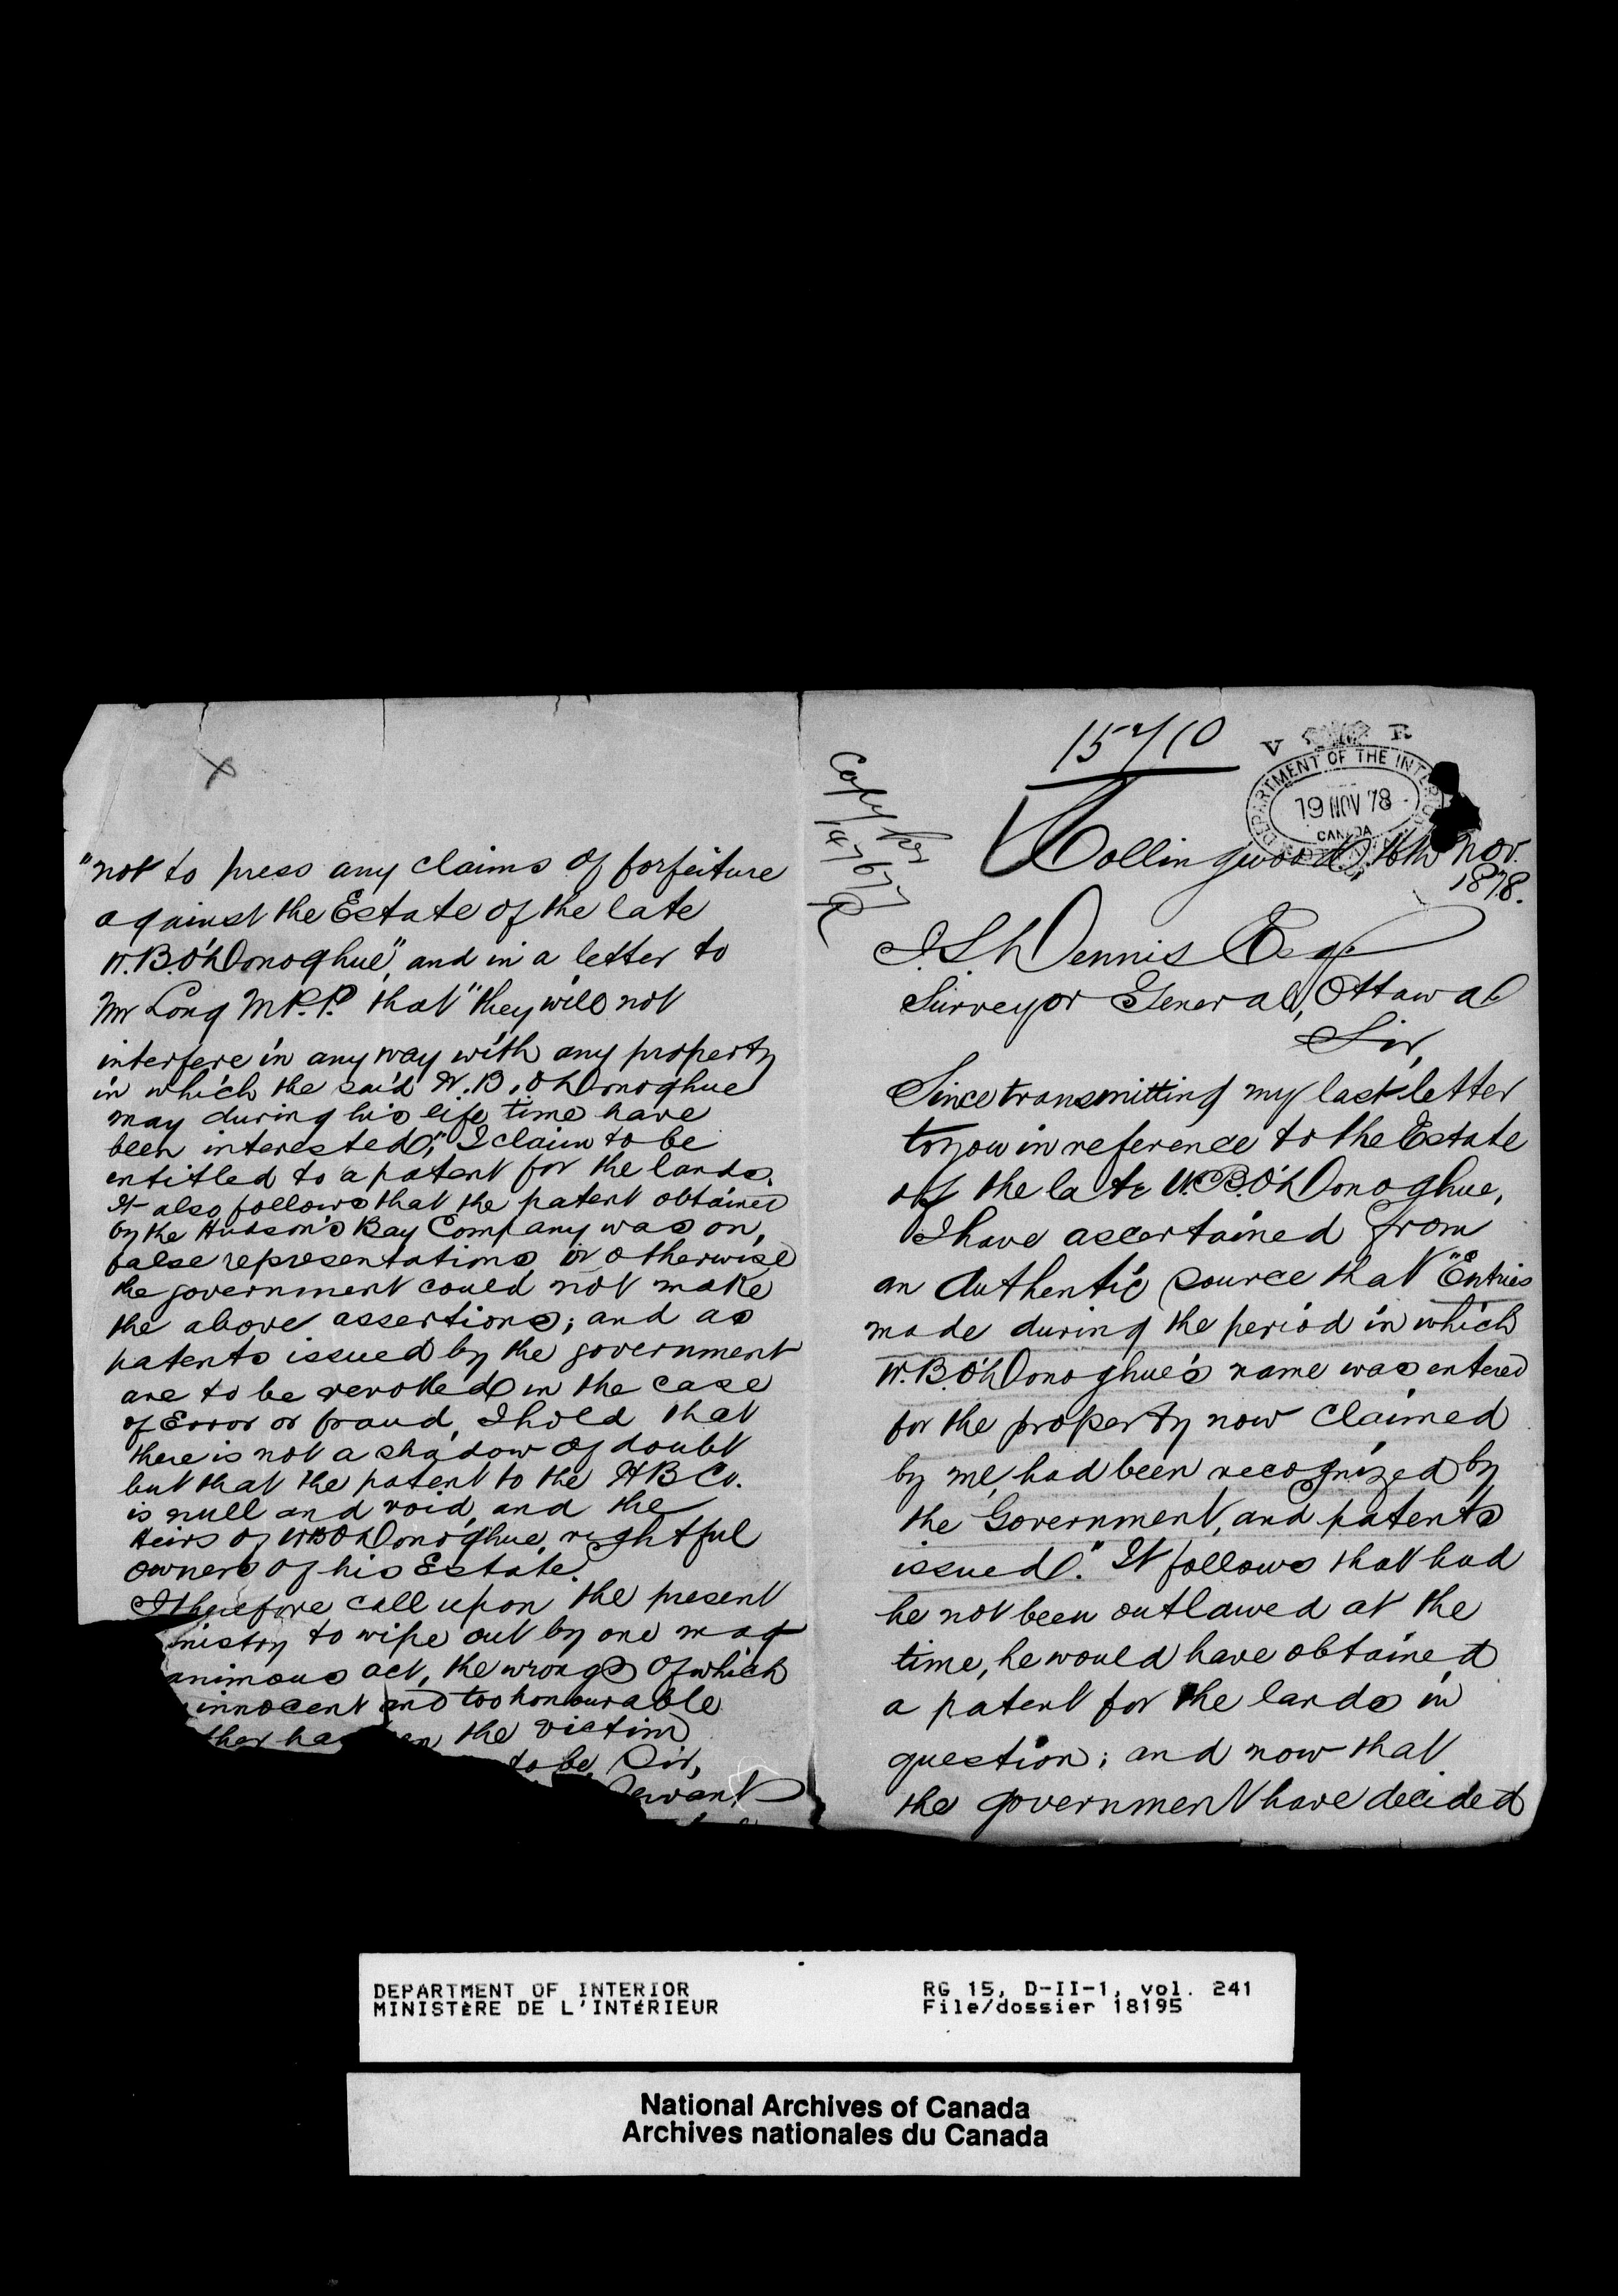 15710
V R
DEPARTMENT OF THE INTERIOR
19 NOV 78
CANADA
Copy
47677
Collingwood, 16th Nov.
1878.
J. S. Dennis Esq.
Surveyor General, Ottawa
Sir,
Since transmitting my last letter
to you in reference to the Estate
of the late W.B. O'Donoghue,
I have ascertained from
an Authentic source that "Entries
made during the period in which
W.B. O'Donoghue's name was entered
for the property now claimed
by me, had been recognized by
the Government, and patents
issued." It follows that had
he not been outlawed at the
time, he would have obtained
a patent for the lands in
question; and now that
the government have decided
"not to press any claims of forfeiture
against the Estate of the late
W.B. O'Donoghue", and in a letter to
Mr Long M.P.P. that "they will not
interfere in any way with any property
in which the said W.B. O'Donoghue
may during his life time have
been interested," I claim to be
entitled to a patent for the lands.
It also follows that the patent obtained
by the Hudson's Bay Company was on,
false representations, or otherwise
the government could not make
the above assertions; and as
patents issued by the government
are to be revoked in the case
of Error or fraud, I hold that
there is not a shadow of doubt
but that the patent to the H B Co.
is null and void, and the
Heirs of WB O'Donoghue, rightful
owners of his Estate.
I therefore call upon the present
nistry to wipe out by one mag
animous act, the wrongs of which
innocent and too honourable
ther ha en the victim
to be, Sir,
Servant
DEPARTMENT OF INTERIOR
MINISTÈRE DE L'INTÉRIEUR
RG 15, D-II-1, vol. 241
File/dossier 18195
National Archives of Canada
Archives nationales du Canada